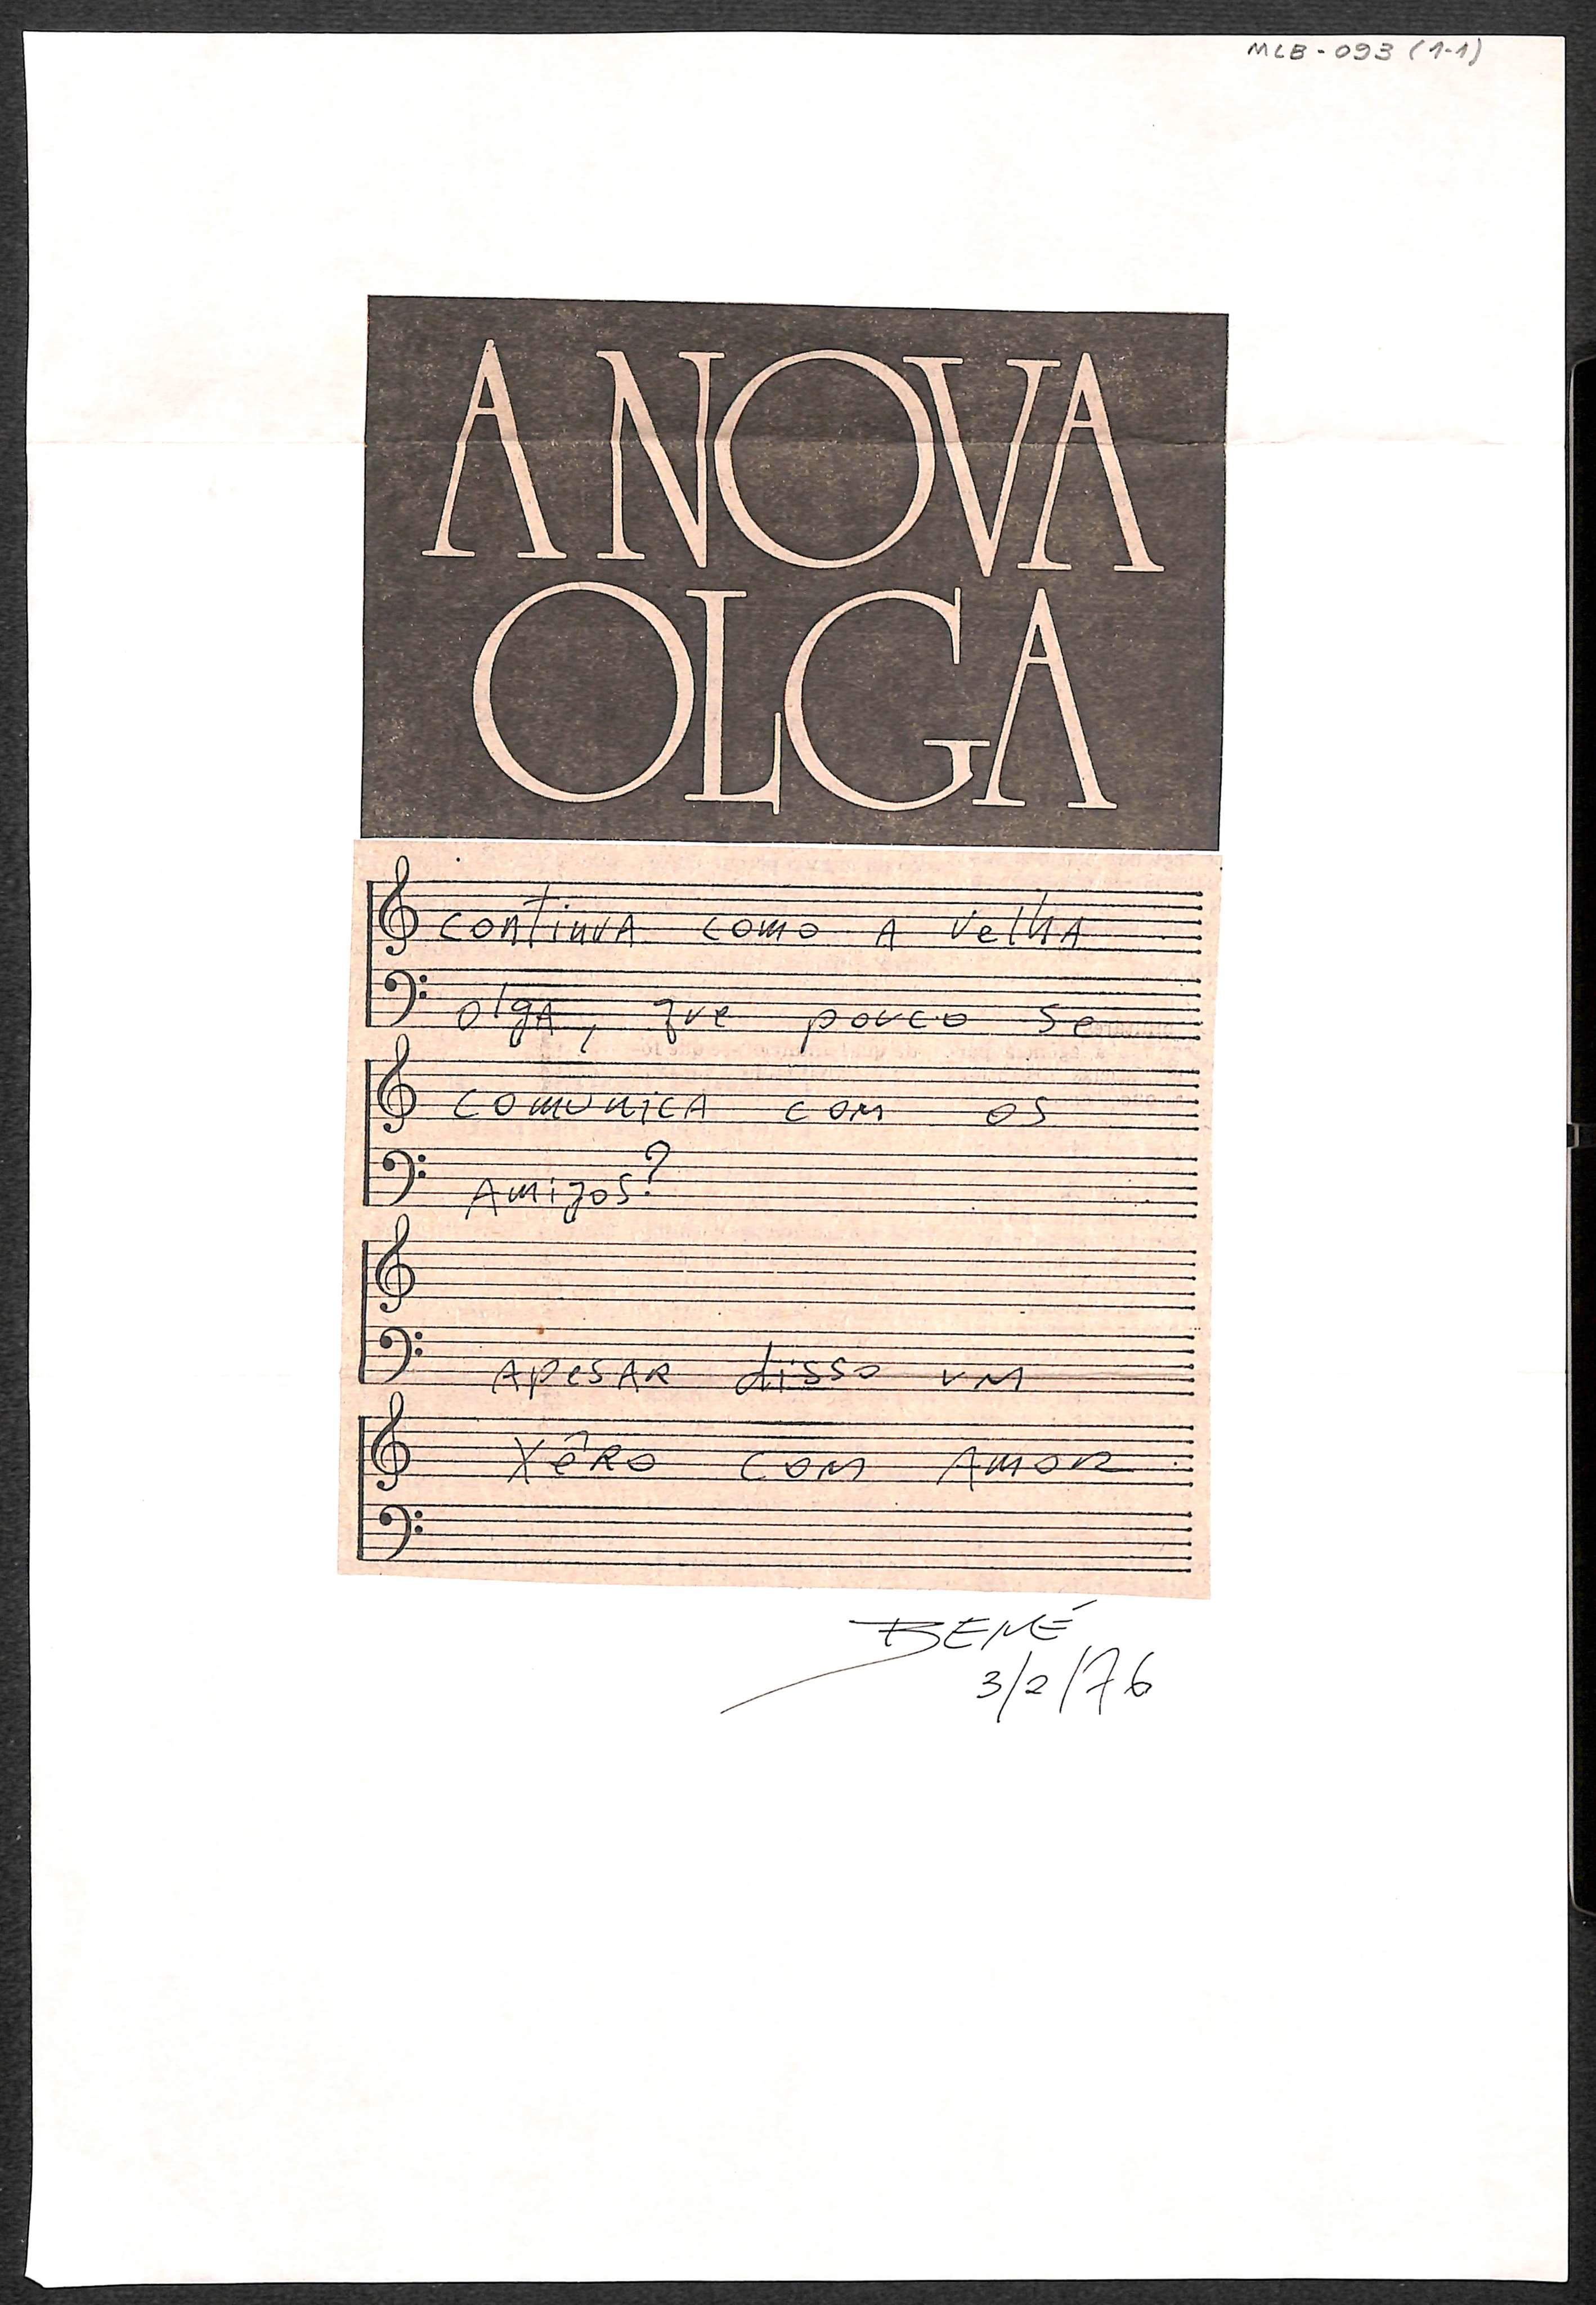 MLB-093 (1-1)
A NOVA
OLGA
continua como a velha
olga, que pouco se
comunica com os
Amigos?
Apesar disso um
Xêro com Amor
BENÉ
3/2/76